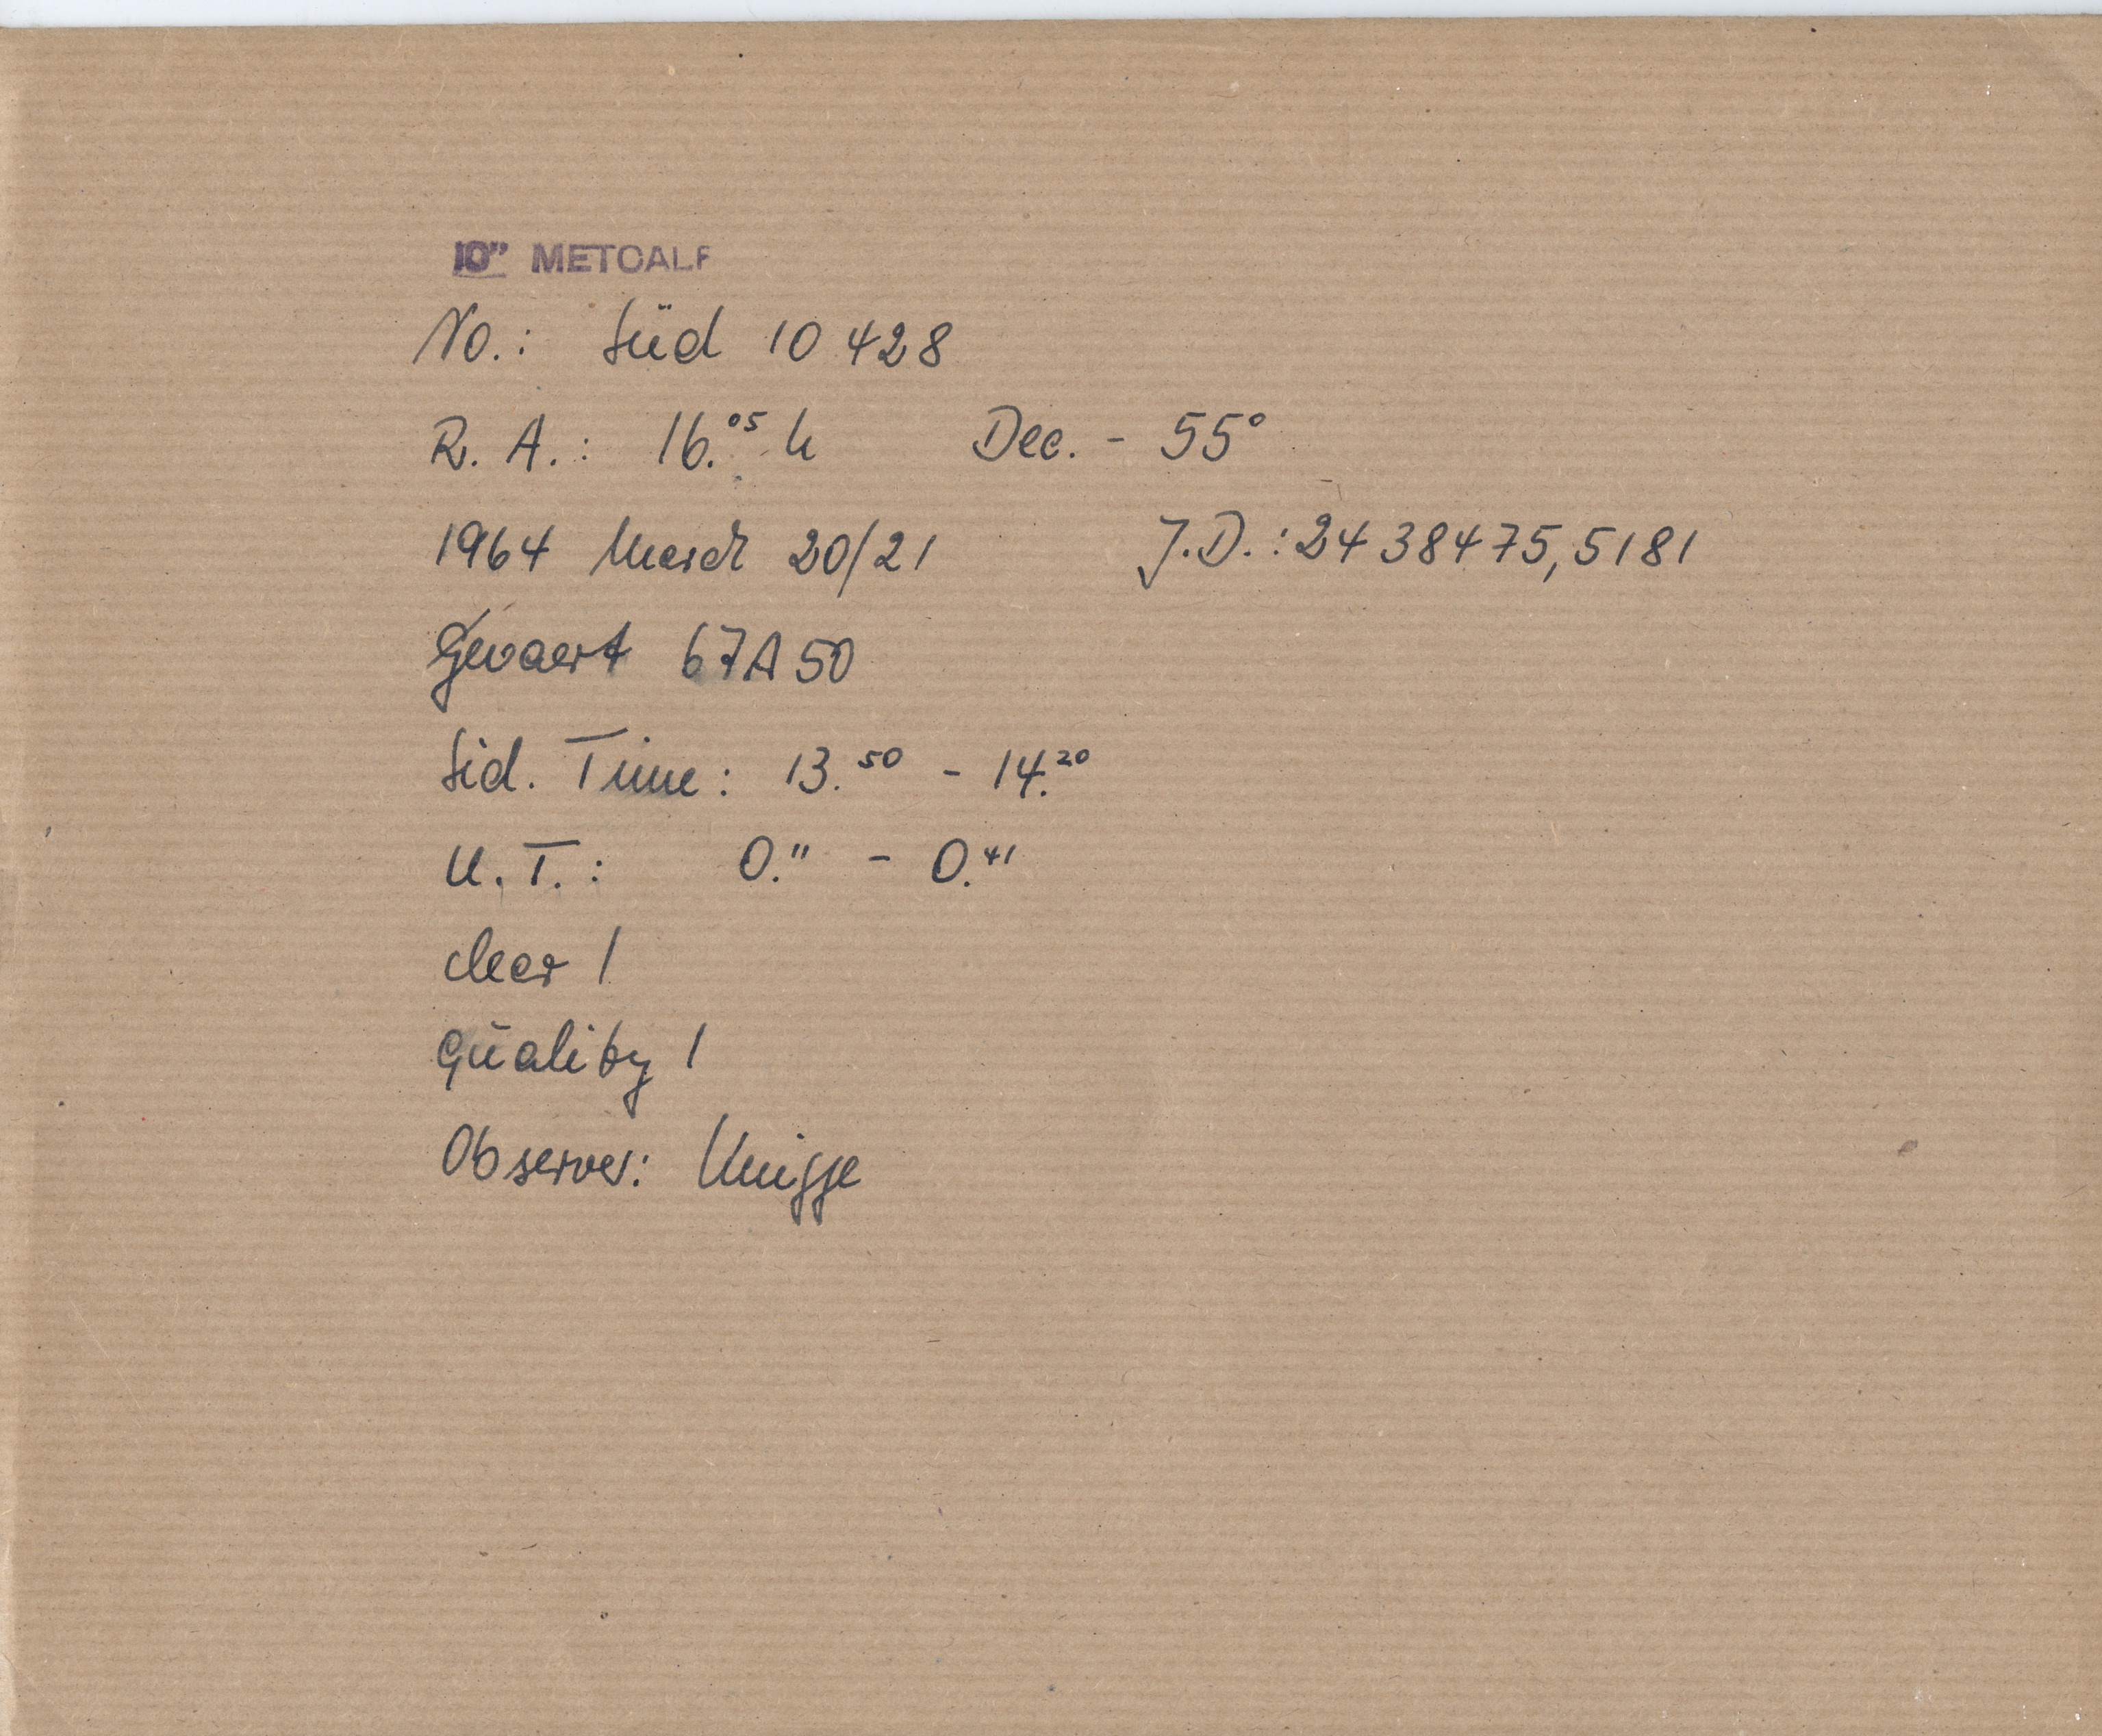 10" METCALF
No.: Süd 10 428
R. A.: 16.⁰⁵ h Dec. - 55°
1964 March 20/21 J.D.: 24 38475,5181
Gevaert 67A50
Sid. Time: 13.⁵⁰ - 14.²⁰
U. T.: 0.¹¹ - 0.⁴¹
clear 1
Quality 1
Observer: Knigge